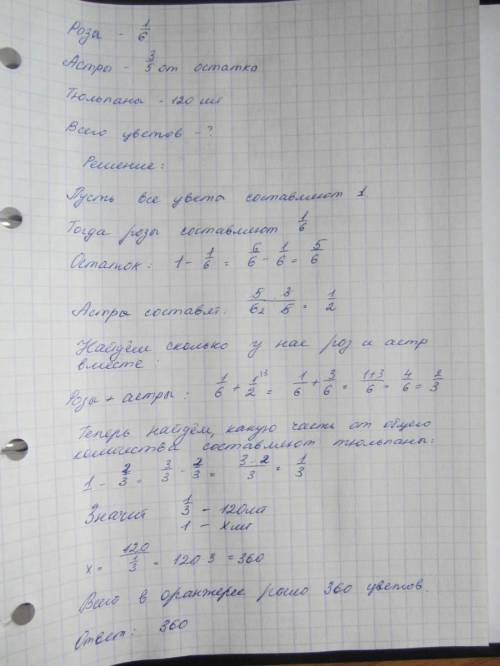 Розы - 1/6
Астры - 3/5 от остатка
Тюльпаны - 120 шт
Всего цветов - ?
Решение:
Пусть все цветы составляют 1
Тогда розы составляют 1/6
Остаток: 1 - 1/6 = 6/6 - 1/6 = 5/6
Астры составл: 5 · 3 / 6₂ 5 = 1/2
Найдём сколько у нас роз и астр
вместе:
Розы + астры: 1/6 + 1/2 ^13 = 1/6 + 3/6 = 1+3/6 = 4/6 = 2/3
Теперь найдём, какую часть от общего
количества составляют тюльпаны:
1 - 2/3 = 3/3 - 2/3 = 3-2/3 = 1/3
Значит 1/3 - 120шт
1 - x шт
x = 120 / 1/3 = 120·3 = 360
Всего в оранжерее росло 360 цветов.
Ответ: 360